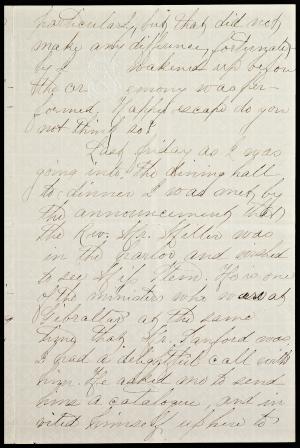 particularly, but that did not
make any difference, fortunately
by I wakened up before
the cer emony was per-
formed. Happy escape do you
not think so?
Last Friday as I was
going into the dining hall
to dinner I was met by
the announcement that
the Rev. Mr. was
in the parlor and wished
to see Miss He is one
of the ministers who was at
Gibraltar at the same
time that Mr. Sanford was.
I had a delightful call with
him. He asked me to send
him a catalogue, and in
vited himself up here to